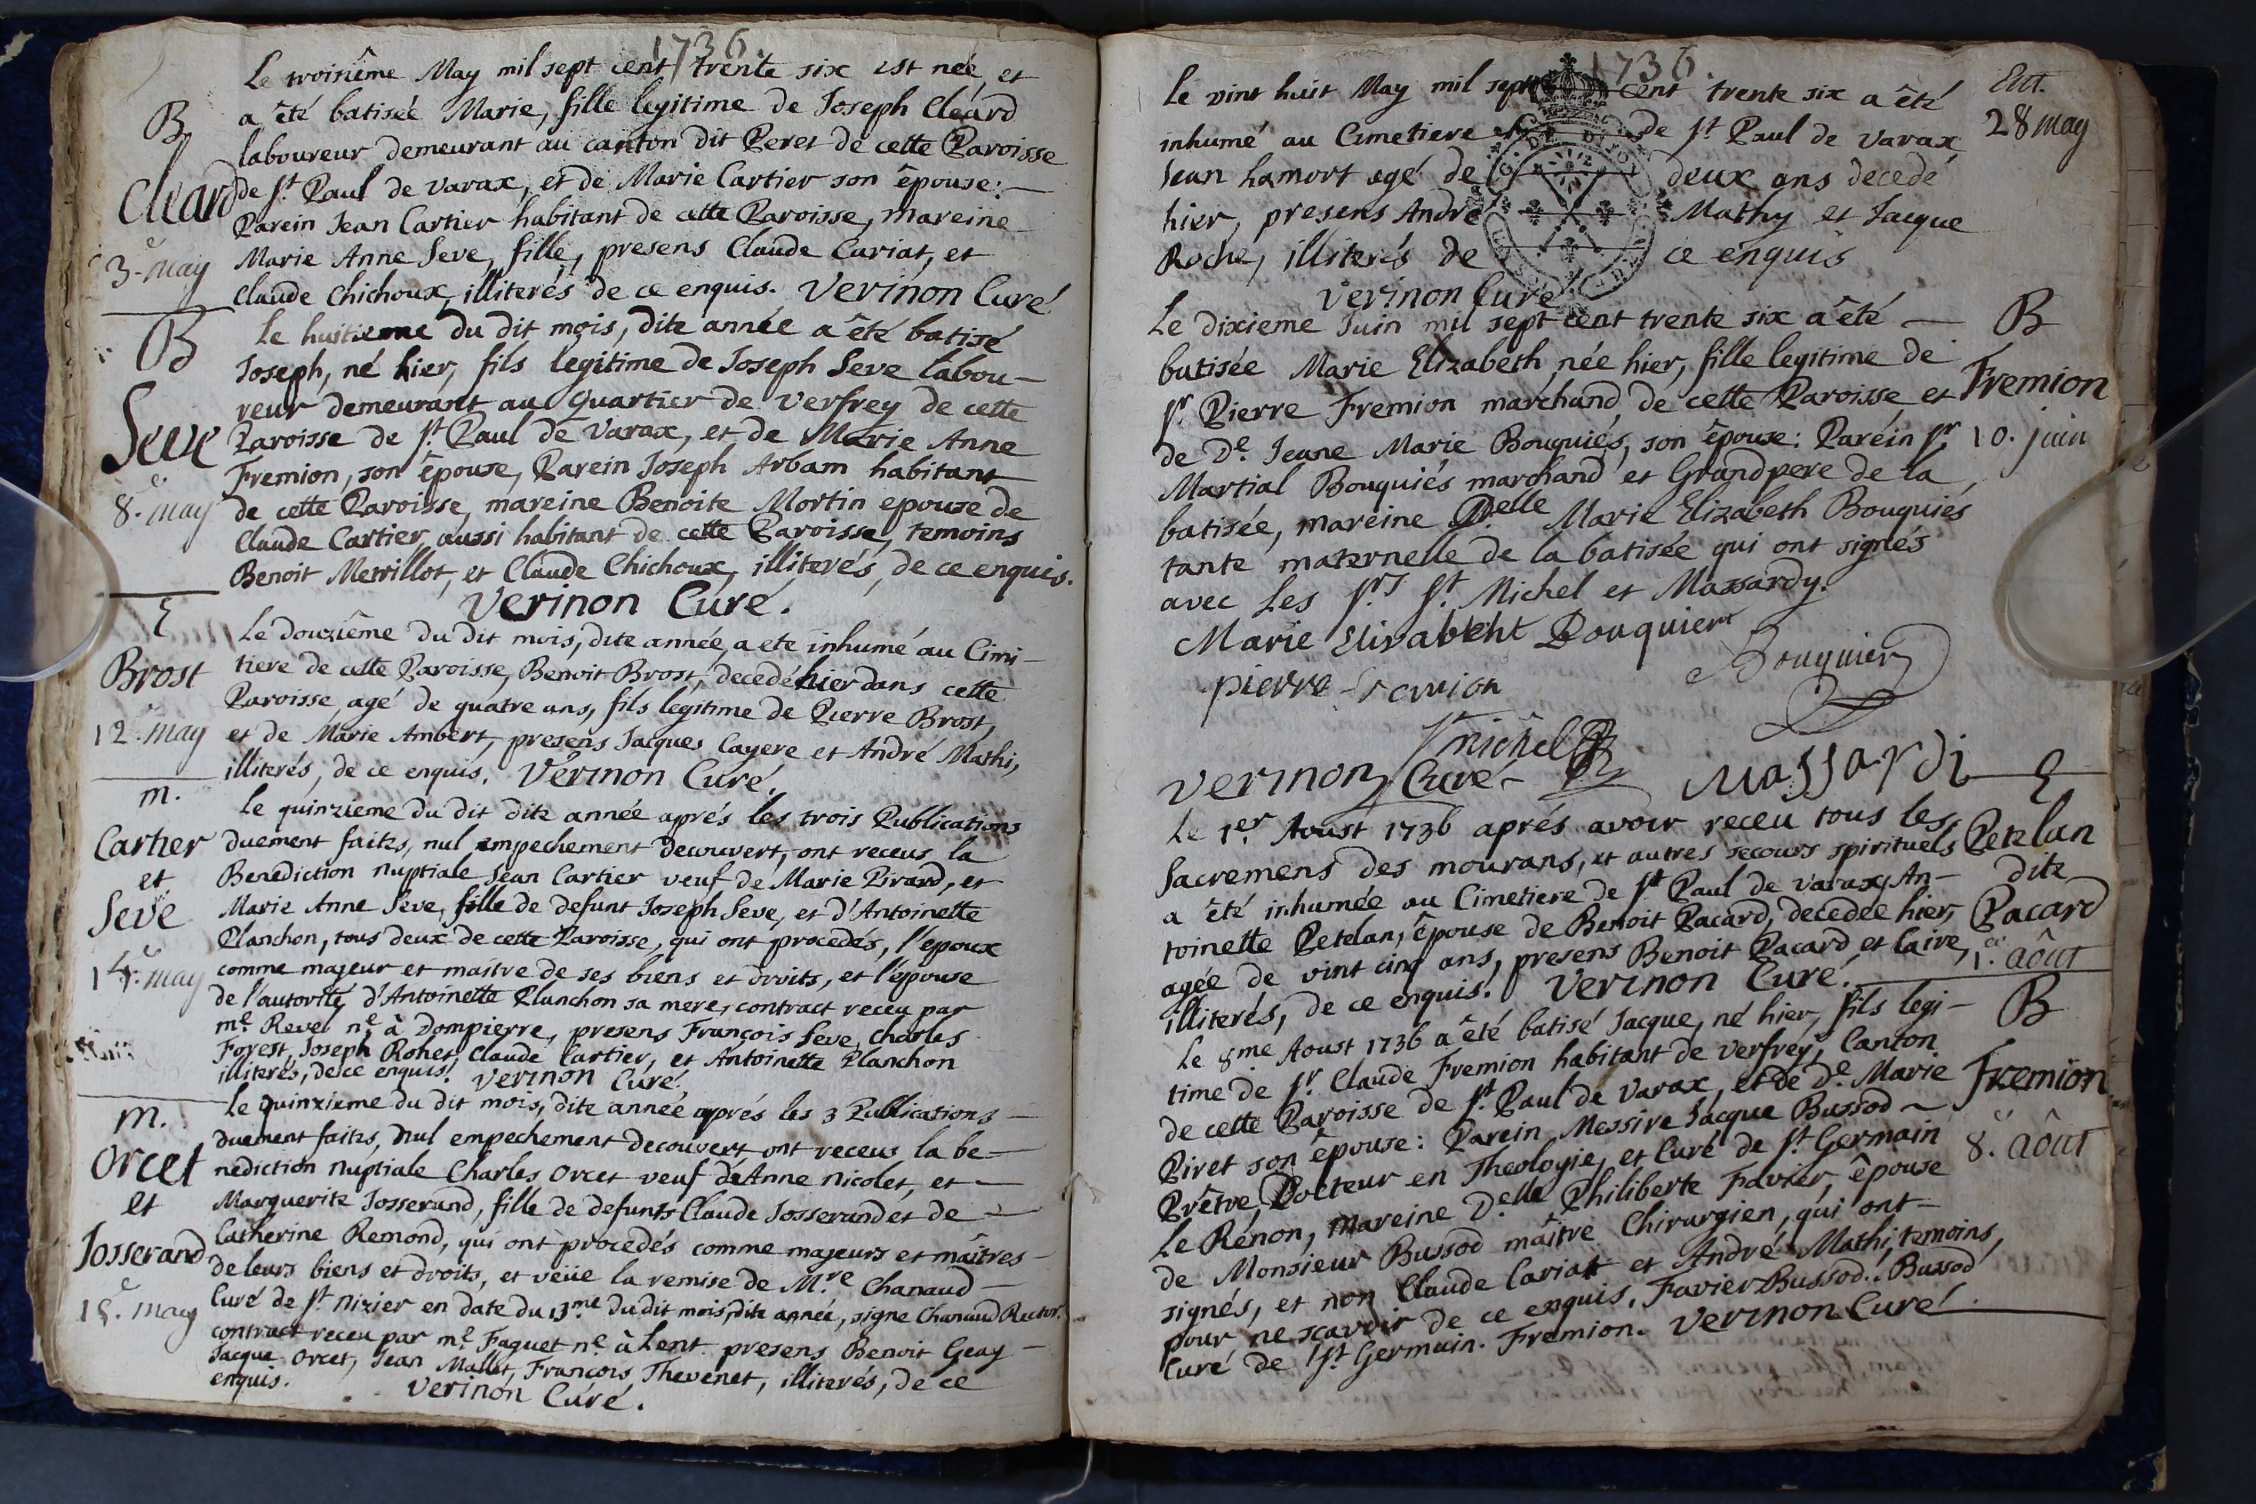 1736.
B
Cleard
3.e may
Le troisiême May mil sept cent trente six est née, et
a êté batisée Marie, fille legitime de Joseph Cleard
laboureur demeurant au canton dit Peret de cette Paroisse
de St Paul de Varax, et de Marie Cartier son êpouse:
Parein Jean Cartier habitant de cette Paroisse, mareine
Marie Anne Seve, fille, presens Claude Curiat, et
Claude Chichoux, illiterés de ce enquis. Verinon Curé
B
Seve
8.e may
Le huitieme du dit mois, dite année a êté batisé
Joseph, né hier, fils legitime de Joseph Seve labou-
reur demeurant au Quartier de Verfrey de cette
Paroisse de St Paul de Varax, et de Marie Anne
Fremion, son êpouse, Parein Joseph Arbam habitant
de cette Paroisse, mareine Benoite Mortin epouse de
Claude Cartier, aussi habitant de cette Paroisse, temoins
Benoit Merillot, et Claude Chichoux, illiterés, de ce enquis.
Verinon Curé.
E
Brost
12.e may
Le douziême du dit mois, dite année, a ete inhumé au Cimi-
tiere de cette Paroisse, Benoit Brost, decedé hier dans cette
Paroisse, agé de quatre ans, fils legitime de Pierre Brost,
et de Marie Ambert, presens Jacques Cayere et André Mathi,
illiterés, de ce enquis. Verinon Curé.
m.
Cartier
et
Seve
may
Le quinzieme du dit dite année aprés les trois Publications
duement faites, nul empechement decouvert, ont receus la
Benediction nuptiale Jean Cartier veuf de Marie Pirard, et
Marie Anne Seve, fille de defunt Joseph Seve, et d'Antoinette
Planchon, tous deux de cette Paroisse, qui ont procedés, l'epoux
comme majeur et maître de ses biens et droits, et l'epouse
de l'autorité d'Antoinette Planchon sa mere, contract receu par
me Revel ne à Dompierre, presens François Seve, Charles
Forest, Joseph Rohet, Claude Cartier, et Antoinette Planchon
illiterés, de ce enquis. Verinon Curé.
m.
Orcet
et
Josserand
15.e may
Le quinzieme du dit mois, dite année aprés les 3 Publications
duement faites, nul empechement decouvert ont receus la be-
nediction nuptiale Charles Orcet veuf de Anne Nicolet, et
Marguerite Josserand, fille de defunts Claude Josserand et de
Catherine Remond, qui ont procedés comme majeurs et maîtres
de leurs biens et droits, et veüe la remise de M.re Chanaud
Curé de St Nizier en date du 13.me du dit mois, dite année, signe Chanaud Rector.
contract receu par me Faguet ne à Lent. presens Benoit Geay
Jacque Orcet, Jean Mallet, François Thevenet, illiterés, de ce
enquis. Verinon Curé.
1736.
Ent.
28 may
Le vint huit May mil sept cent trente six a êté
inhumé au Cimetiere de St Paul de Varax
Jean hamort agé de deux ans decedé
hier, presens André Mathy et Jacque
Roche, illiterés de ce enquis
Verinon Curé
B
Fremion
10. juin
Le dixieme Juin mil sept cent trente six a êté
batisée Marie Elizabeth née hier, fille legitime de
Sr Pierre Fremion marchand de cette Paroisse et
de De Jeane Marie Bouquiés, son êpouse: Parein Sr
Martial Bouquiés marchand et Grandpere de la
batisée, mareine Delle Marie Elizabeth Bouquiés
tante maternelle de la batisée qui ont signés
avec Les Srs St Michel et Massardy.
Marie Elisabeht Bouquier
Bouquier
pierre fremion
St michel
Verinon Curé
Massardi
E
Petelan
dite
Pacard
1.er aôut
Le 1er Aoust 1736 aprés avoir receu tous les
Sacremens des mourans, et autres secours spirituels
a êté inhumée au Cimetiere de St Paul de Varax, An-
toinette Petelan, êpouse de Benoit Pacard, decedee hier,
agée de vint cinq ans, presens Benoit Pacard, et Caire,
illiterés, de ce enquis. Verinon Curé.
B
Fremion
8.e aôut
Le 8me Aoust 1736 a êté batisé Jacque, né hier, fils legi-
time de Sr Claude Fremion habitant de Verfrey, Canton
de cette Paroisse de St Paul de Varax, et de De Marie
Piret son êpouse: Parein Messire Jacque Bussod
Prêtre, Docteur en Theologie, et Curé de St Germain
Le Rénon, mareine Delle Philiberte Favier, êpouse
de Monsieur Bussod maître Chirurgien, qui ont
signés, et non Claude Cariat et André Mathi, temoins,
pour ne scavoir de ce enquis. Favier Bussod. Bussod
Curé de St Germain. Fremion. Verinon Curé.